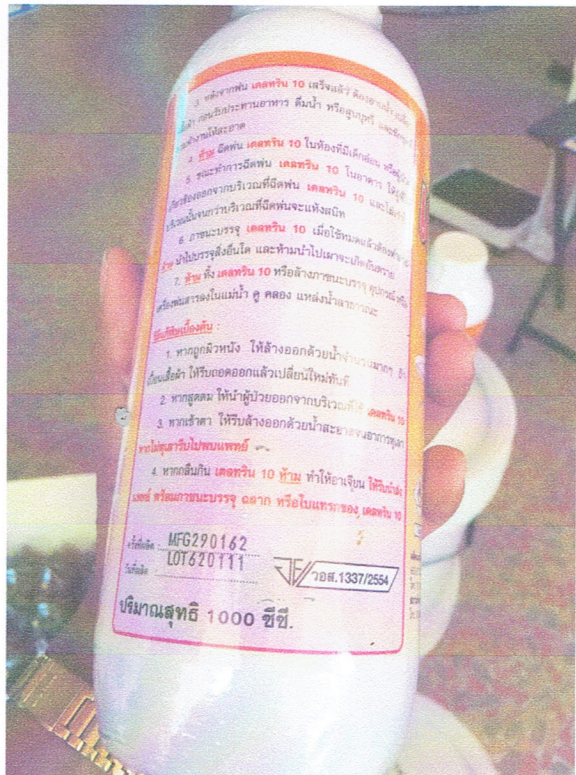 3. หลังจากพ่น เดลทริน 10 เสร็จแล้ว ต้องอาบน้ำ
เสื้อผ้า ก่อนรับประทานอาหาร ดื่มน้ำ หรือสูบบุหรี่ และซักชุดที่
ทำงานให้สะอาด
4. ห้าม ฉีดพ่น เดลทริน 10 ในห้องที่มีเด็กอ่อน หรือผู้ป่วย
5. ขณะทำการฉีดพ่น เดลทริน 10 ในอาคาร ให้ผู้ที่ไม่
เกี่ยวข้องออกจากบริเวณที่ฉีดพ่น เดลทริน 10 และไม่เข้าไป
บริเวณนั้นจนกว่าบริเวณที่ฉีดพ่นจะแห้งสนิท
6. ภาชนะบรรจุ เดลทริน 10 เมื่อใช้หมดแล้วต้องทำลาย
ห้าม นำไปบรรจุสิ่งอื่นใด และห้ามนำไปเผาจะเกิดอันตราย
7. ห้าม ทิ้ง เดลทริน 10 หรือล้างภาชนะบรรจุ อุปกรณ์ หรือ
เครื่องพ่นสารลงในแม่น้ำ คู คลอง แหล่งน้ำสาธารณะ
วิธีแก้พิษเบื้องต้น :
1. หากถูกผิวหนัง ให้ล้างออกด้วยน้ำจำนวนมากๆ ถ้า
เปื้อนเสื้อผ้า ให้รีบถอดออกแล้วเปลี่ยนใหม่ทันที
2. หากสูดดม ให้นำผู้ป่วยออกจากบริเวณที่ใช้ เดลทริน 10
3. หากเข้าตา ให้รีบล้างออกด้วยน้ำสะอาดจนอาการทุเลา
หากไม่ทุเลารีบไปพบแพทย์
4. หากกลืนกิน เดลทริน 10 ห้าม ทำให้อาเจียน ให้รีบนำส่ง
แพทย์ พร้อมภาชนะบรรจุ ฉลาก หรือใบแทรกของ เดลทริน 10
ครั้งที่ผลิต MFG290162
วันที่ผลิต LOT620111
วอส.1337/2554
ปริมาณสุทธิ 1000 ซีซี.